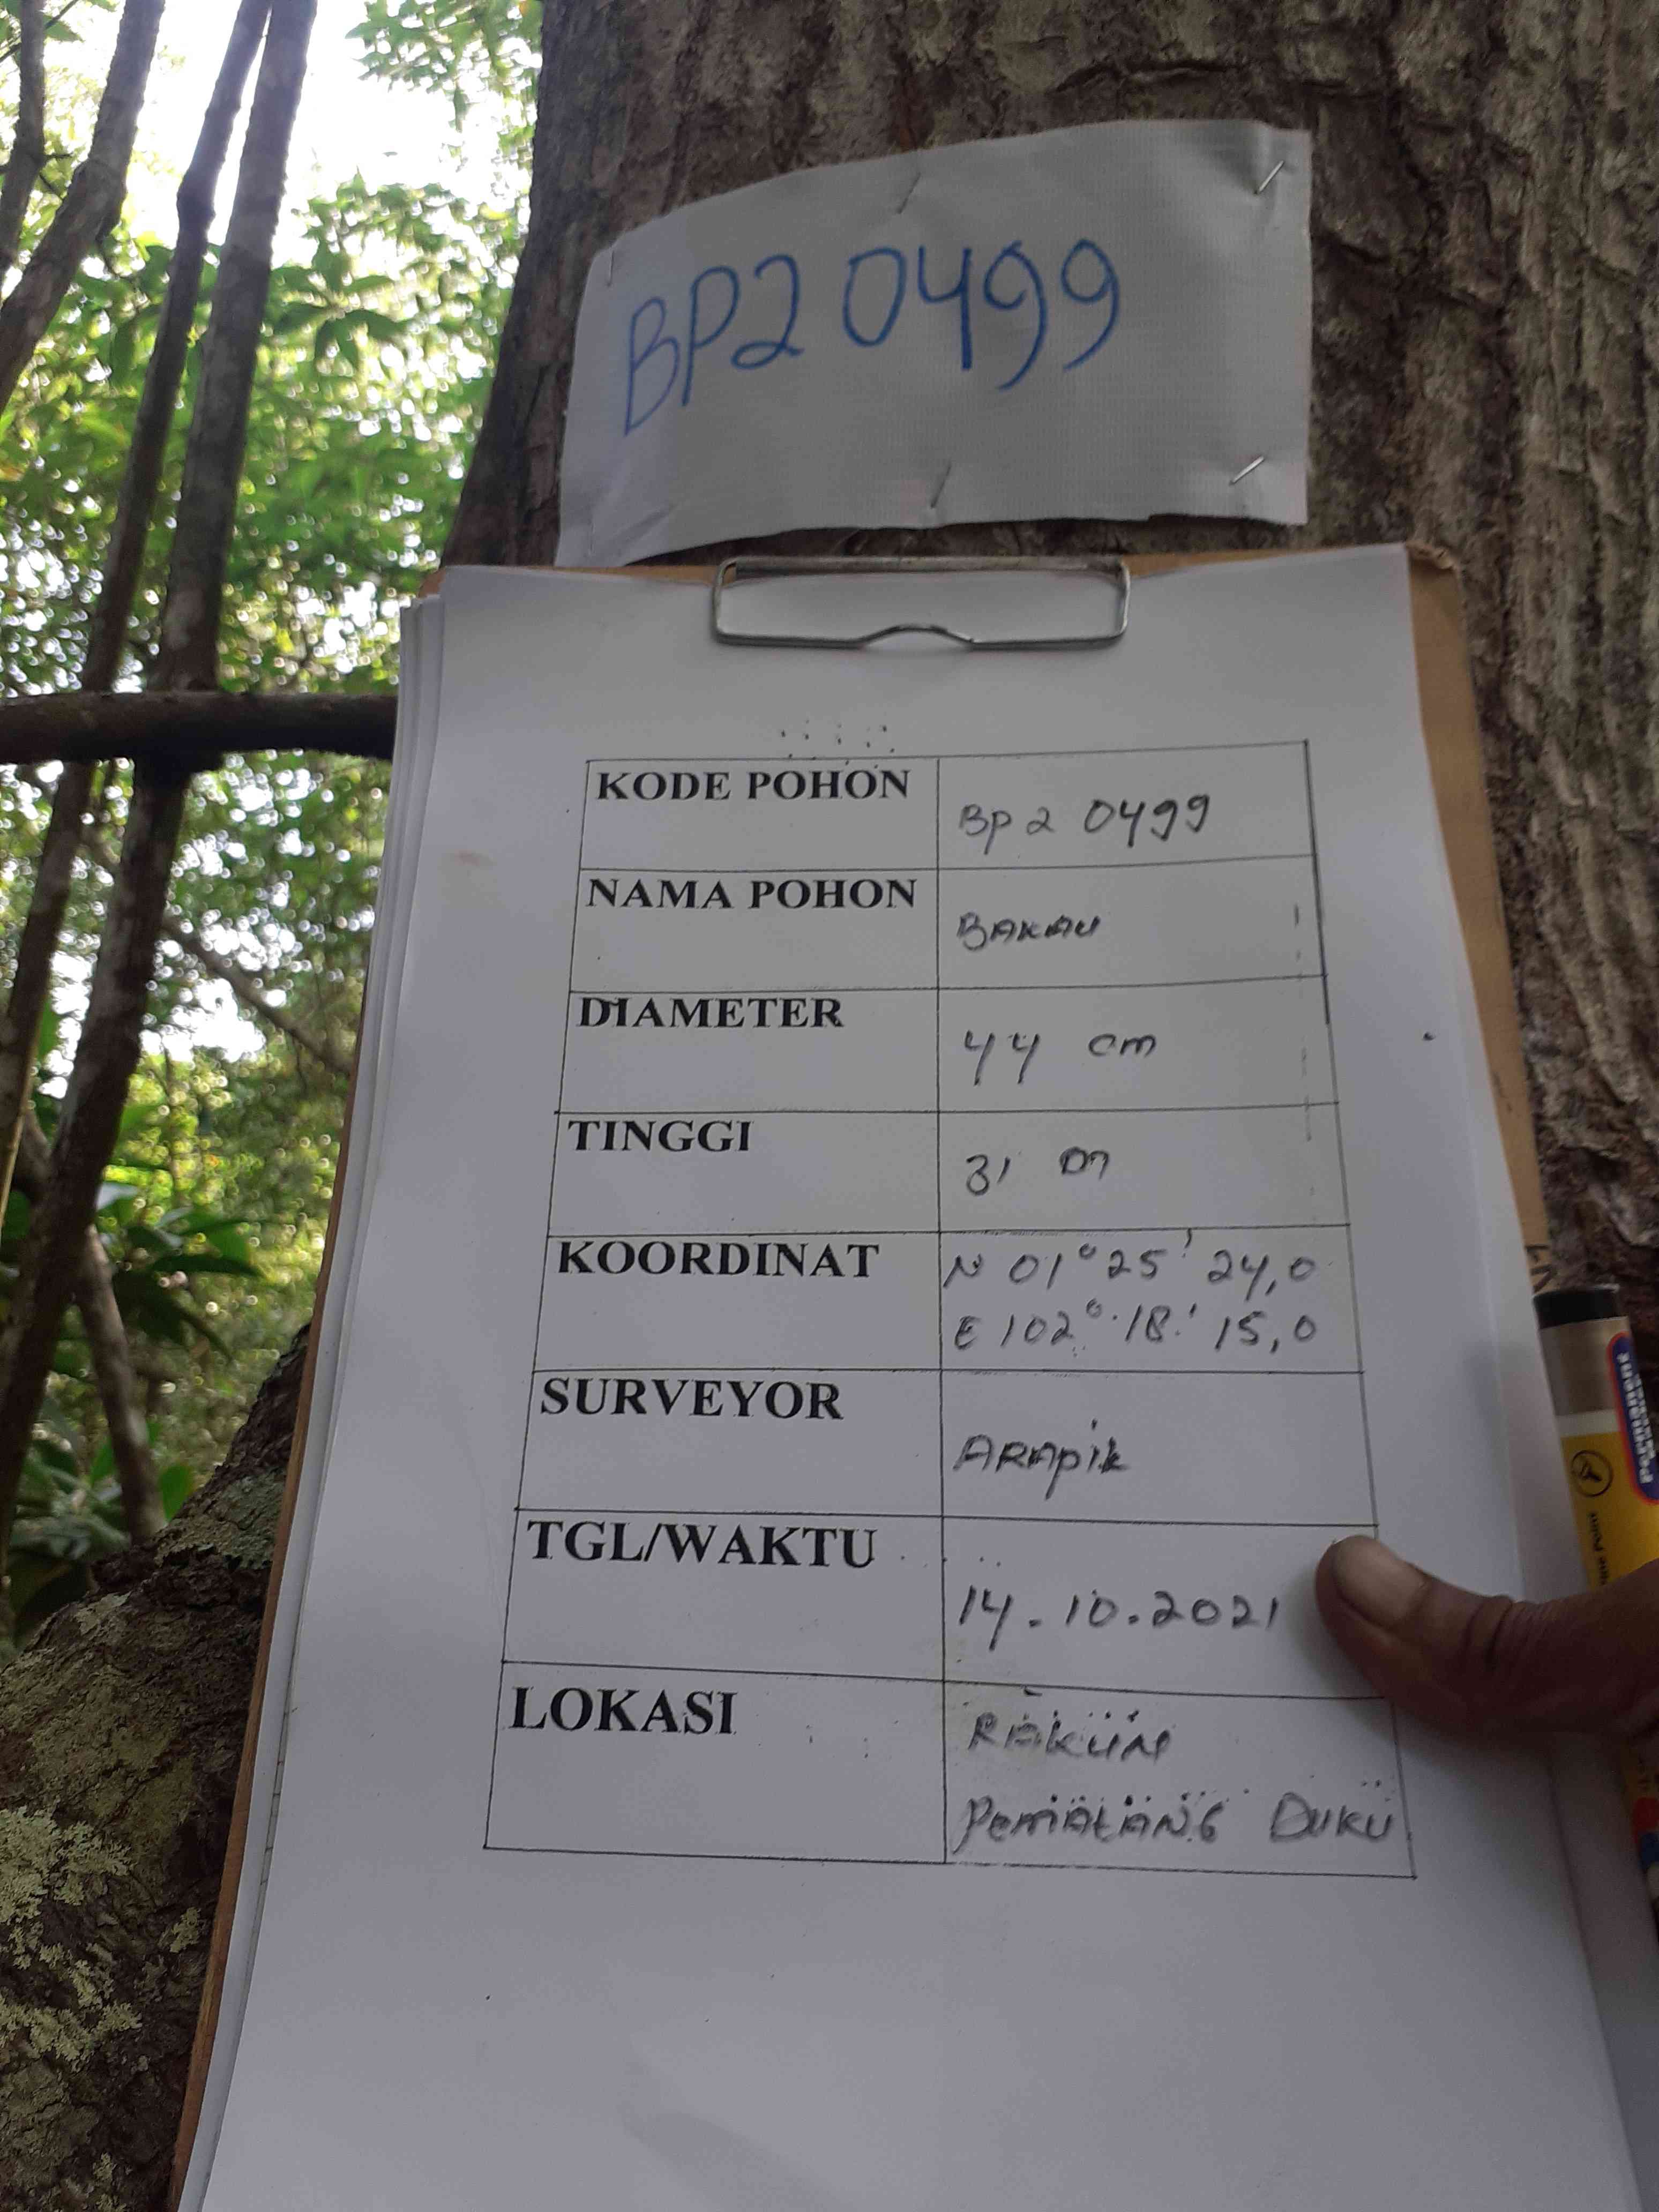 BP2 0499
KODE POHON
BP2 0499
NAMA POHON
BAKAU
DIAMETER
44 cm
TINGGI
31 m
KOORDINAT
N 01° 25' 24,0
E 102° 18' 15,0
SURVEYOR
ARAPik
TGL/WAKTU
14.10.2021
LOKASI
RAKUM
PemAtANG DUKU
PERMANENT